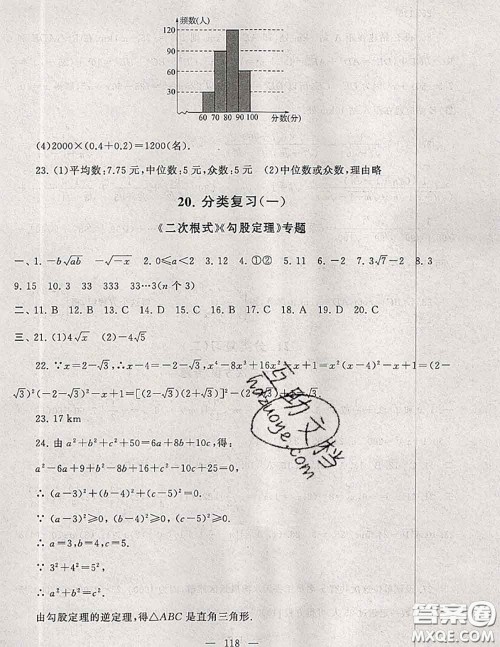 频数(人)
120
90
60
30
60 70 80 90 100 分数(分)
(4)2000×(0.4+0.2)=1200(名).
23. (1)平均数:7.75 元,中位数:5 元,众数:5 元 (2)中位数或众数,理由略
20. 分类复习(一)
《二次根式》《勾股定理》专题
一、1. -b√ab -√-x 2. 0≤a<2 3. 12 4. ①② 5. < 6. -2 7. -3√7-2 8. 3
9. 15 10. 33 333 33…3(n 个 3)
二、11. B 12. D 13. C 14. D 15. C 16. D 17. C 18. C 19. A 20. C
三、21. (1)4√x (2)-4√5
22. ∵x=2-√3,∴x-2=-√3,∴x⁴-8x³+16x²-x+1=x²(x-4)²-x+1=(2-
√3)²(2-√3-4)²-x+1=[(2-√3)(2+√3)]²-2+√3+1=√3
23. 17 km
24. 由 a²+b²+c²+50=6a+8b+10c,得:
a²-6a+9+b²-8b+16+c²-10c+25=0.
∴ (a-3)²+(b-4)²+(c-5)²=0.
∵ (a-3)²≥0,(b-4)²≥0,(c-5)²≥0.
∴ a=3,b=4,c=5.
∵ 3²+4²=5²,
∴ a²+b²=c².
由勾股定理的逆定理,得△ABC 是直角三角形.
— 118 —
互助文档
hdzuoye.com
答案圈
MXQE.COM